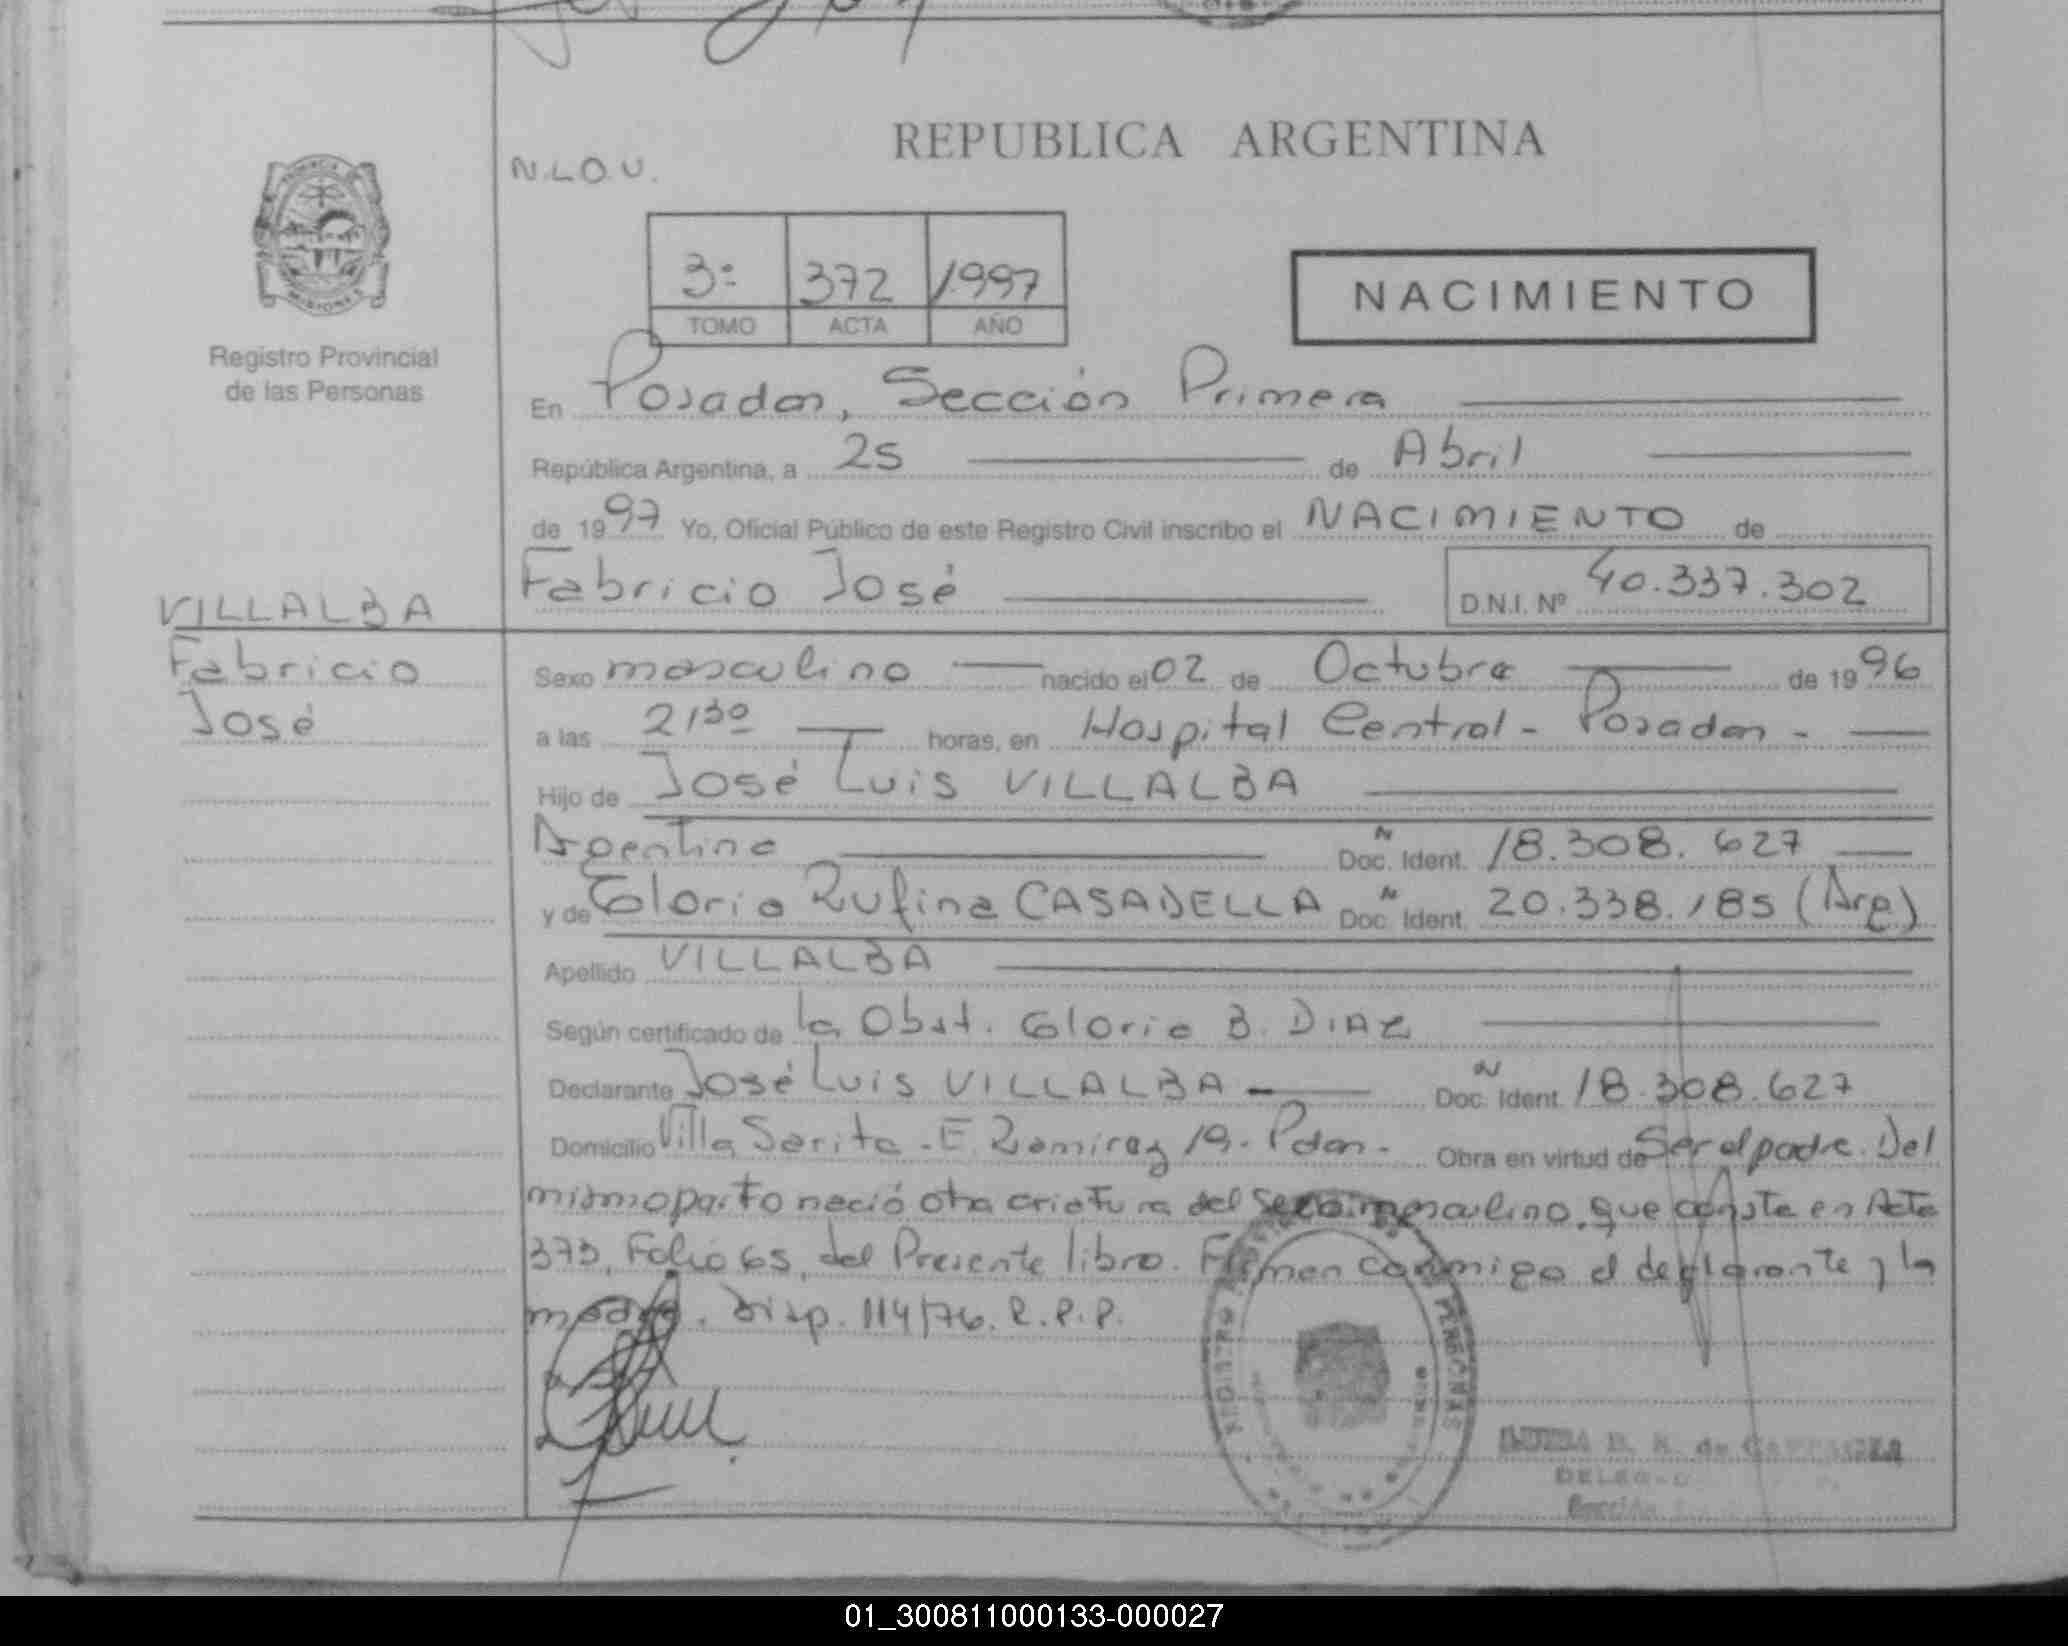 REPUBLICA ARGENTINA
N.L.O.U.
PROVINCIA
MISIONES
Registro Provincial
de las Personas
3º 372 1997
TOMO ACTA AÑO
NACIMIENTO
En Posadas, Sección Primera
República Argentina, a 25 de Abril
de 1997 Yo, Oficial Público de este Registro Civil inscribo el NACIMIENTO de
Fabricio José D.N.I. Nº 40.337.302
VILLALBA
Fabricio
José
Sexo masculino nacido el 02 de Octubre de 1996
a las 21³⁰ horas, en Hospital Central - Posadas -
Hijo de José Luis VILLALBA
Argentino Doc. Ident. 18.308.627
y de Gloria Rufina CASADELLA Doc. Ident. 20.338.185 (Arg)
Apellido VILLALBA
Según certificado de la Obst. Gloria B. DIAZ
Declarante José Luis VILLALBA Doc. Ident. 18.308.627
Domicilio Villa Sarita - E. Ramirez 19 - Pdas - Obra en virtud de Ser el padre. Del
mismo parto nació otra criatura del sexo masculino, que consta en Acta
373, Folio 65, del Presente libro. Firman conmigo el declarante y la
madre. Disp. 114/76. R.P.P.
01_300811000133-000027